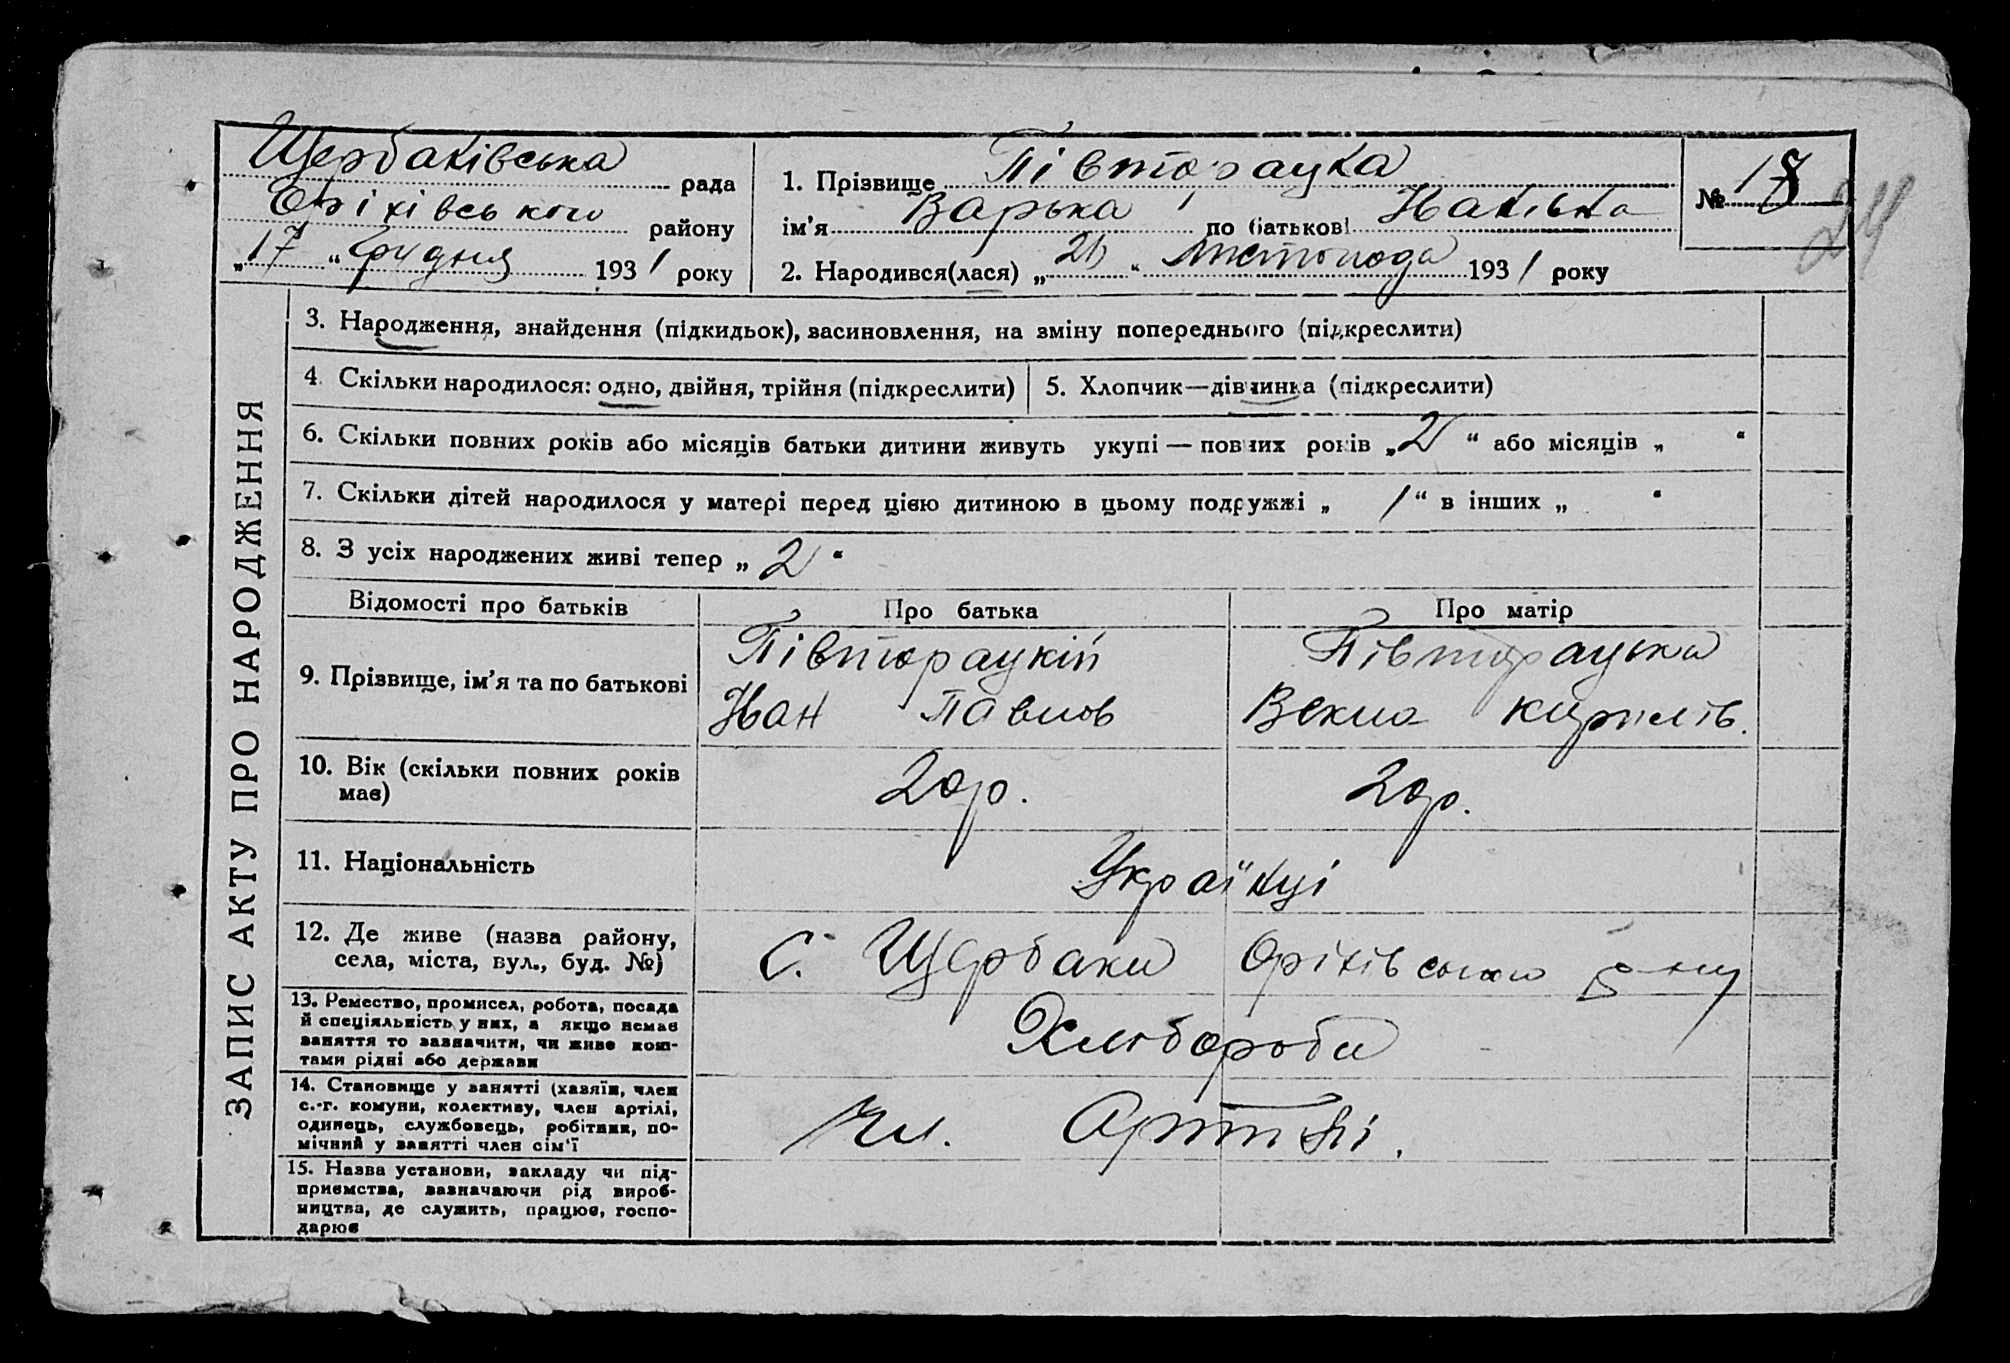 Щербаківська рада
Оріхівського району
„17“ Грудня 1931 року
1. Прізвище Півторацка
ім'я Варька по батькові
2. Народився(лася) „ “ листопода 1931 року
№ 24
ЗАПИС АКТУ ПРО НАРОДЖЕННЯ
3. Народження, знайдення (підкидьок), засиновлення, на зміну попереднього (підкреслити)
4. Скільки народилося: одно, двійня, трійня (підкреслити)
5. Хлопчик—дівчинка (підкреслити)
6. Скільки повних років або місяців батьки дитини живуть укупі — повних років „2“ або місяців „ “
7. Скільки дітей народилося у матері перед цією дитиною в цьому подружжі „1“ в інших „ “
8. З усіх народжених живі тепер „2“
Відомості про батьків
Про батька
Про матір
9. Прізвище, ім'я та по батькові
Півторацкій
Іван Павлов
Півторацька
Векла Кирилів.
10. Вік (скільки повних років
має)
20р.
20р.
11. Національність
Українці
12. Де живе (назва району,
села, міста, вул., буд. №)
С. Щербаки Оріхівського р-ну
13. Ремество, промисел, робота, посада
й спеціяльність у них, а якщо немає
заняття то зазначити, чи живе кош-
тами рідні або держави
Хлібороби
14. Становище у занятті (хазяїн, член
с.-г. комуни, колективу, член артілі,
одинець, службовець, робітник, по-
мічний у занятті член сім'ї
Чл. Артілі.
15. Назва установи, закладу чи під-
приємства, зазначаючи рід вироб-
ництва, де служить, працює, госпо-
дарює